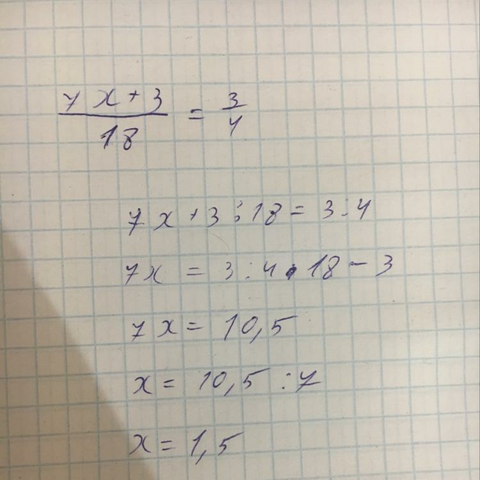 7x+3/18 = 3/4
7x+3:18=3:4
7x=3:4·18-3
7x=10,5
x=10,5:7
x=1,5